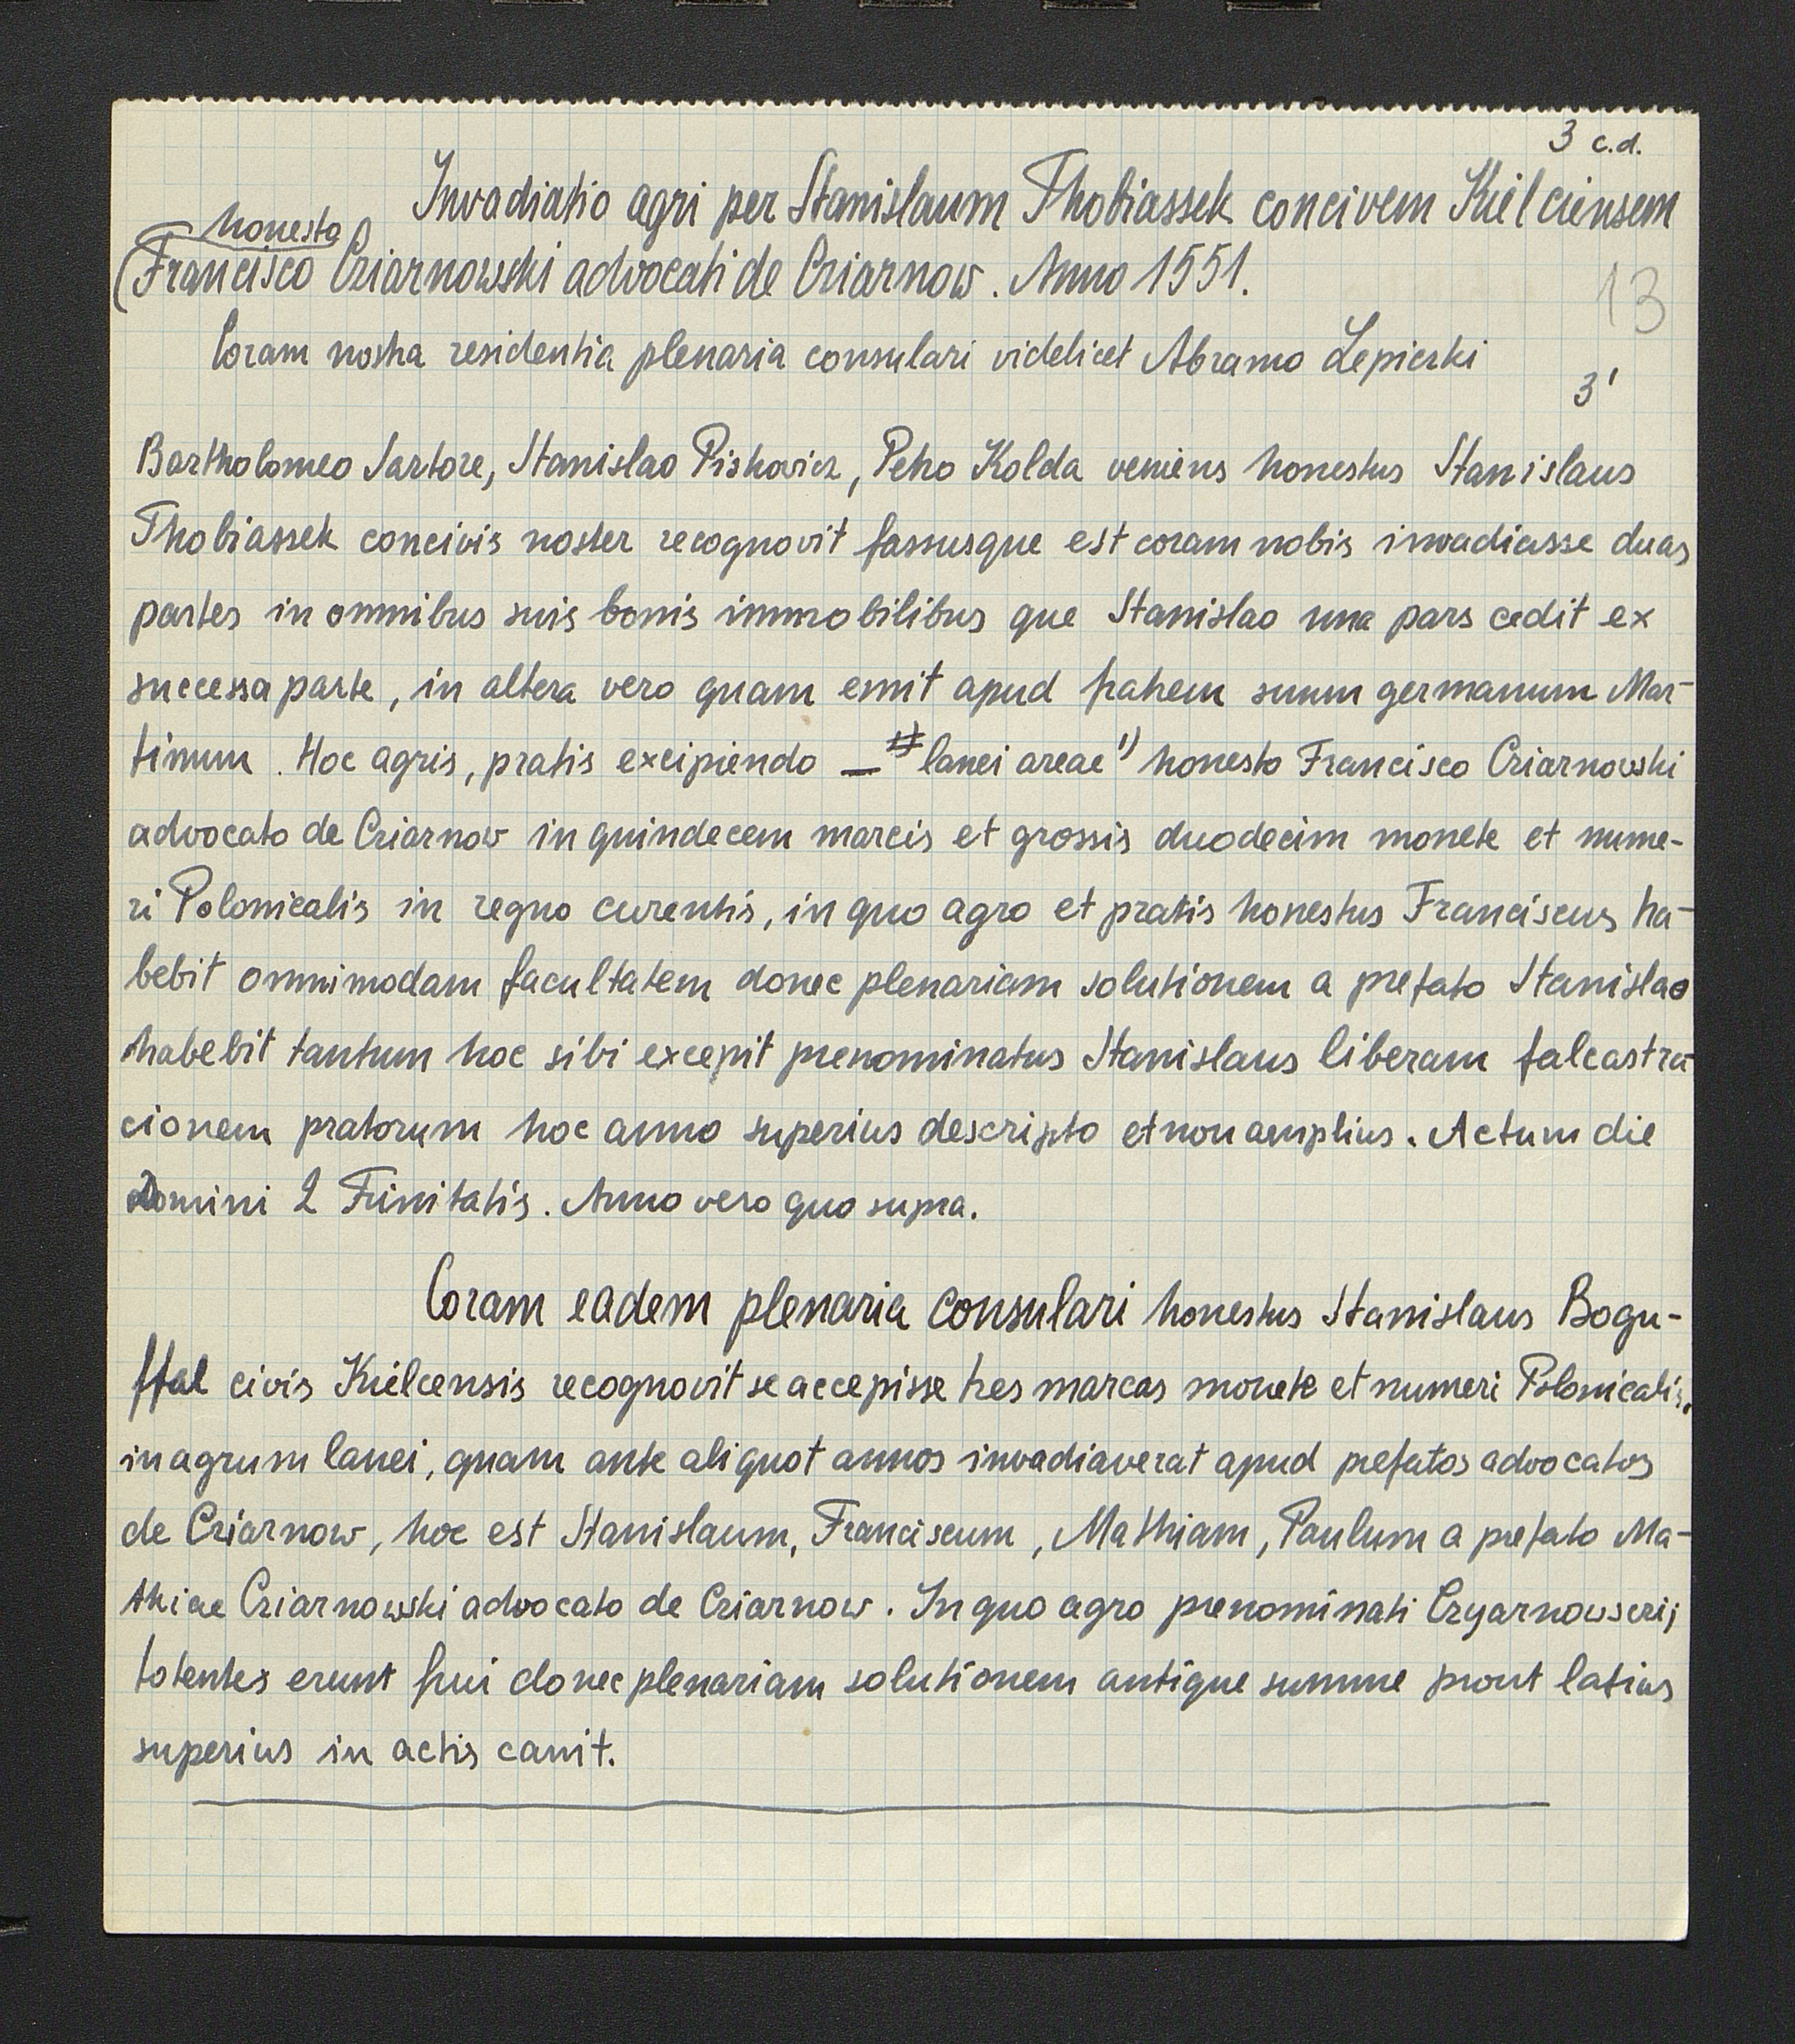 3 c.d.
Invadiatio agri per Stanislaum Thobiassek concivem Kielciensem
honesto
(Francisco Cziarnowski advocati de Cziarnow. Anno 1551.
13
Coram nostra residentia plenaria consulari videlicet Abramo Lepiczki
3'
Bartholomeo Sartore, Stanislao Piskowicz, Petro Kolda veniens honestus Stanislaus
Thobiassek concivis noster recognovit fassusque est coram nobis invadiasse duas
partes in omnibus suis bonis immobilibus que Stanislao una pars cedit ex
successa parte, in altera vero quam emit apud fratrem suum germanum Mar-
tinum. Hoc agris, pratis excipiendo — lanei areae 1) honesto Francisco Cziarnowski
advocato de Cziarnow in quindecem marcis et grossis duodecim monete et nume-
ri Polonicalis in regno curentis, in quo agro et pratis honestus Franciscus ha-
bebit omnimodam facultatem donec plenariam solutionem a prefato Stanislao
habebit tantum hoc sibi excepit prenominatus Stanislaus liberam falcastra-
cionem pratorum hoc anno superius descripto et non amplius. Actum die
Domini 2 Trinitatis. Anno vero quo supra.
Coram eadem plenaria consulari honestus Stanislaus Bogu-
ffal civis Kielcensis recognovit se accepisse tres marcas monete et numeri Polonicalis.
in agrum lanei, quam ante aliquot annos invadiaverat apud prefatos advocatos
de Cziarnow, hoc est Stanislaum, Franciscum, Mathiam, Paulum a prefato Ma-
thiae Cziarnowski advocato de Cziarnow. In quo agro prenominati Czyarnowscrij
totentes erunt frui donec plenariam solutionem antique summe prout latius
superius in actis canit.